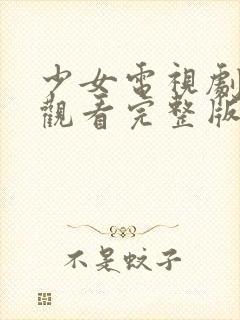 少女電視劇
觀看完整版
不是蚊子